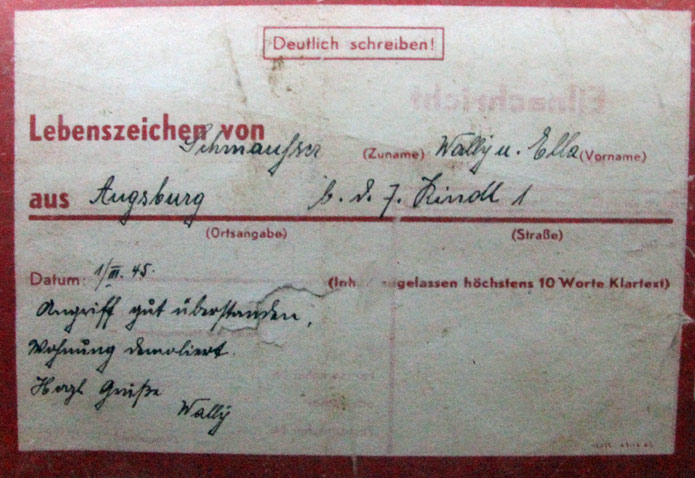 Deutlich schreiben!
Eilnachricht
Lebenszeichen von Schmausser (Zuname) Wally u. Ella (Vorname)
aus Augsburg b. d. 7. Kindl 1
(Ortsangabe) (Straße)
Datum: 1/III. 45. (Inh ugelassen höchstens 10 Worte Klartext)
Angriff gut überstanden,
Wohnung demoliert.
Herzl Grüße
Wally